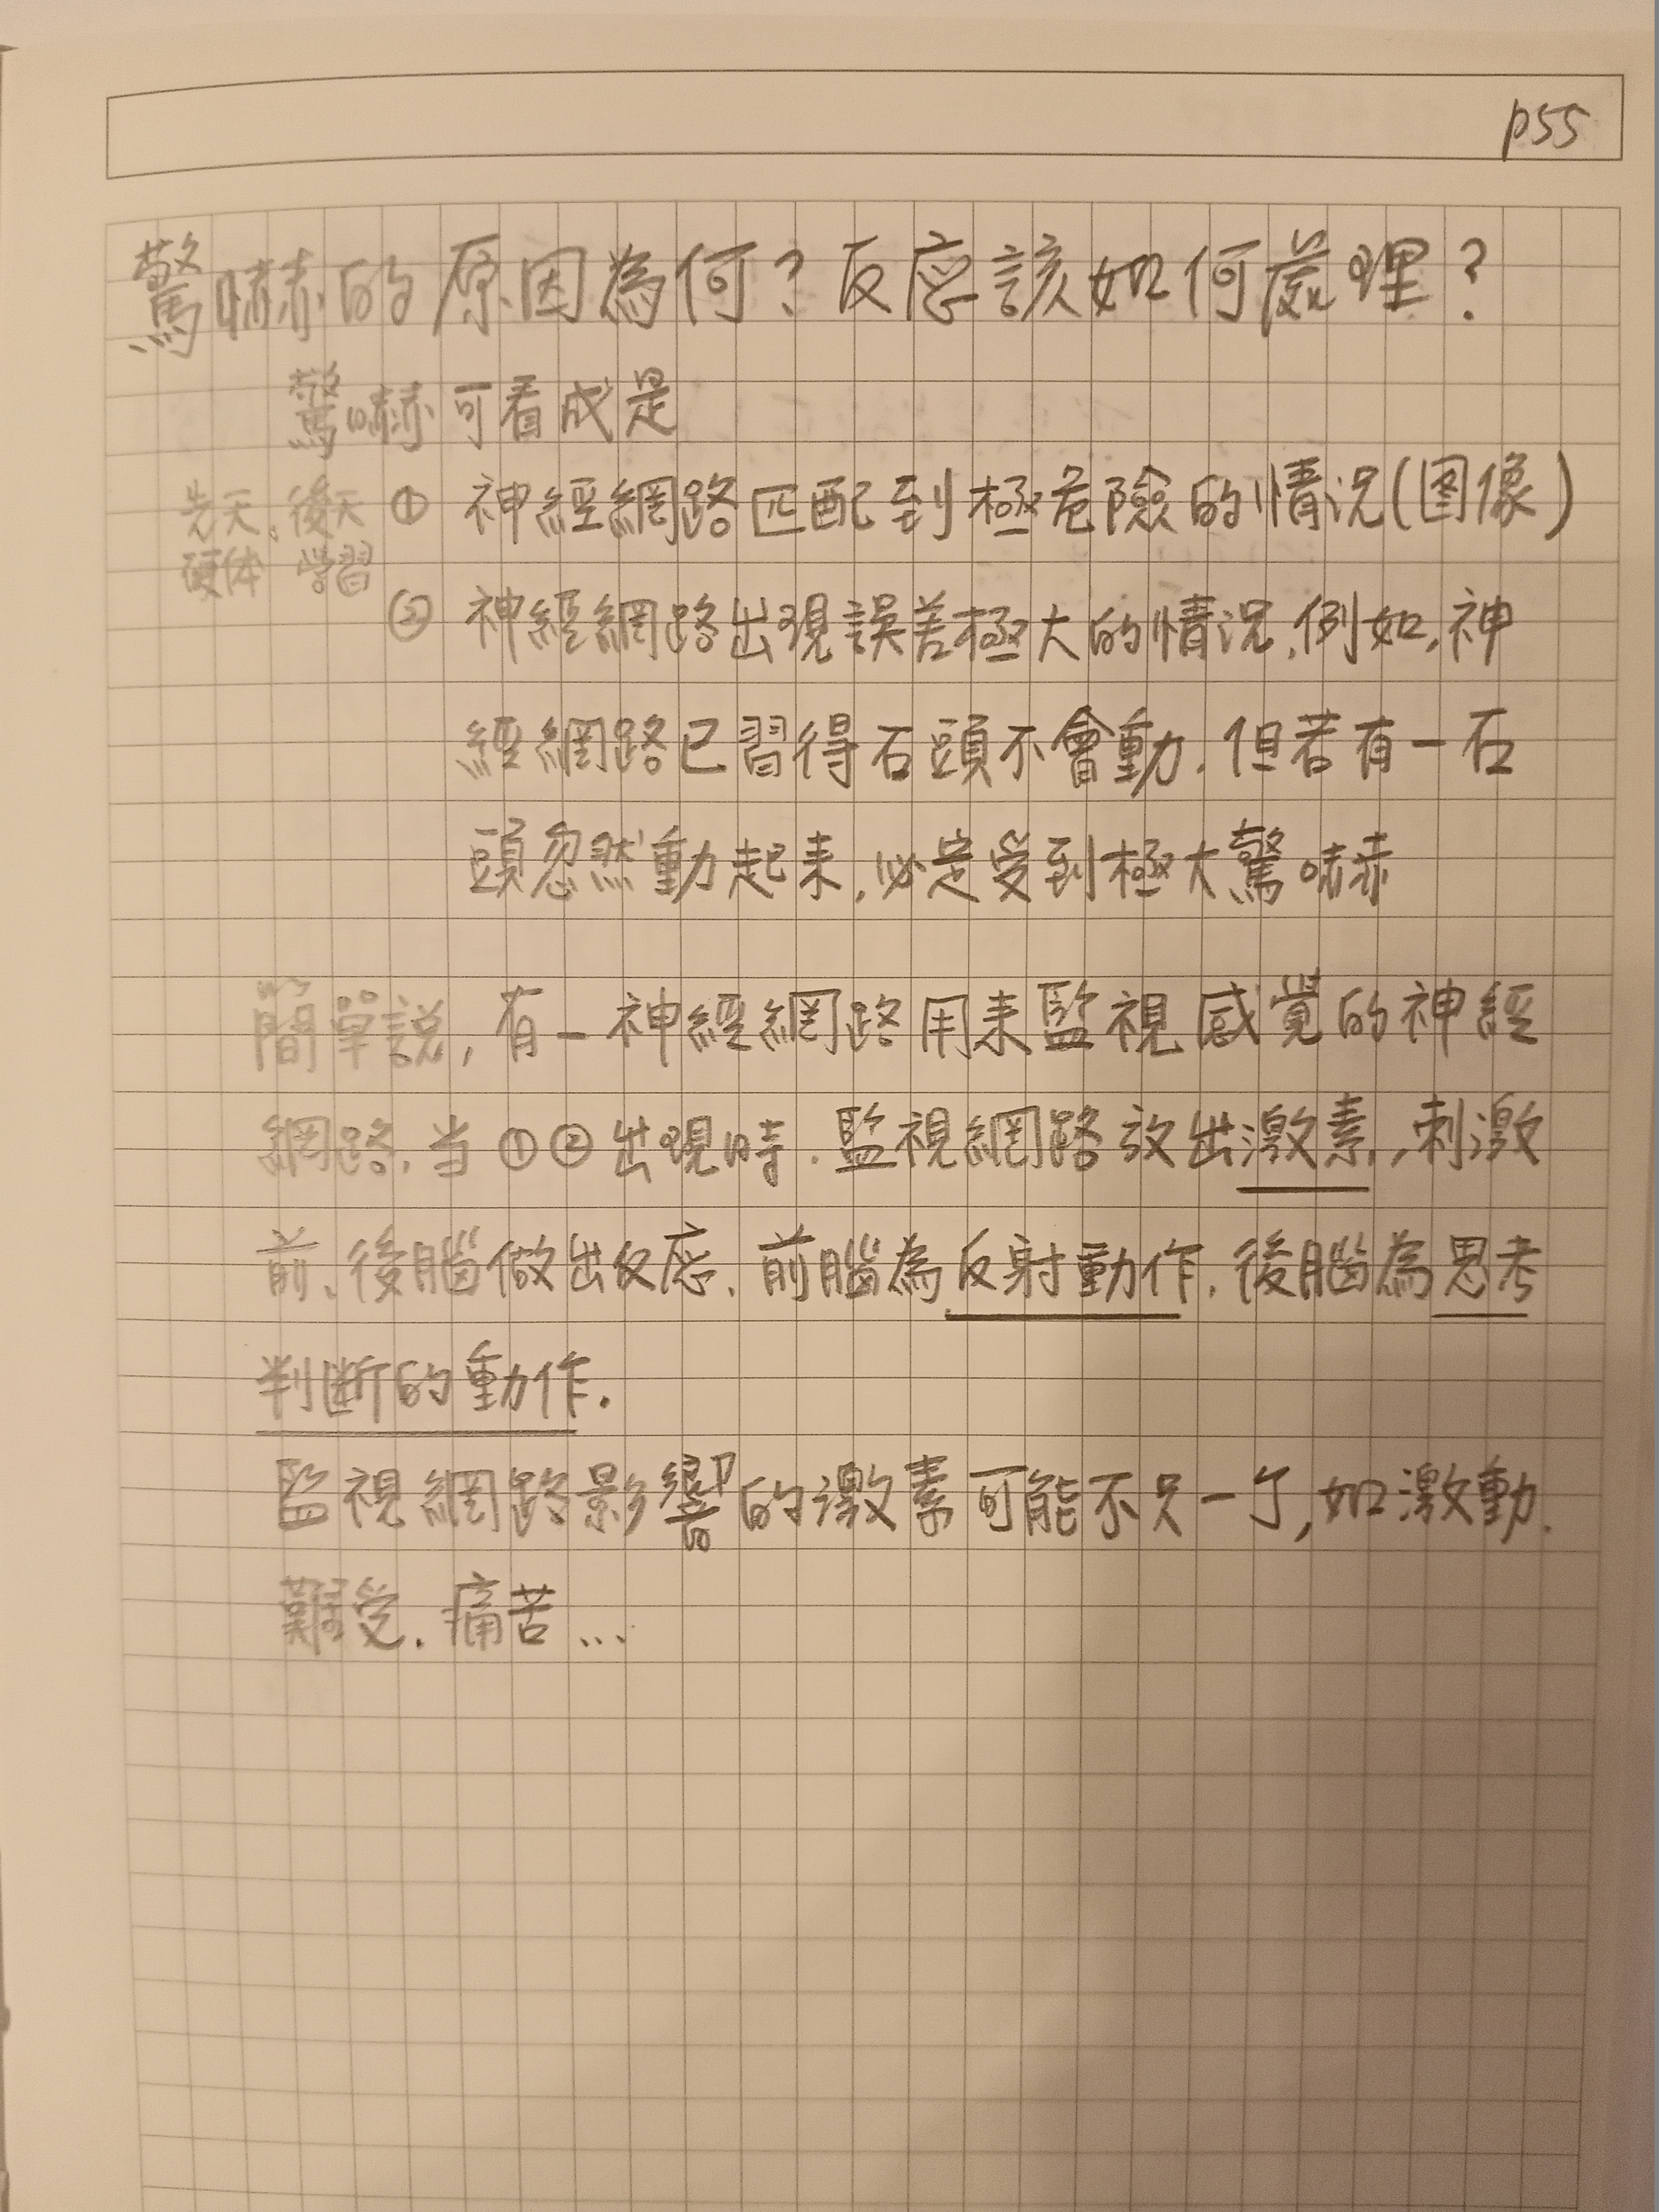 p55
驚嚇的原因為何?反應該如何處理?
驚嚇可看成是
先天、後天 ① 神經網路匹配到極危險的情況(图像)
硬体 學習
② 神經網路出現誤差極大的情況,例如,神
經網路已習得石頭不會動,但若有一石
頭忽然動起来,必定受到極大驚嚇
簡單說,有一神經網路用来監視感覺的神經
網路,当①②出現時,監視網路放出激素,刺激
前、後腦做出反應,前腦為反射動作,後腦為思考
判斷的動作.
監視網路影響的激素可能不只一个,如激動.
難受.痛苦...